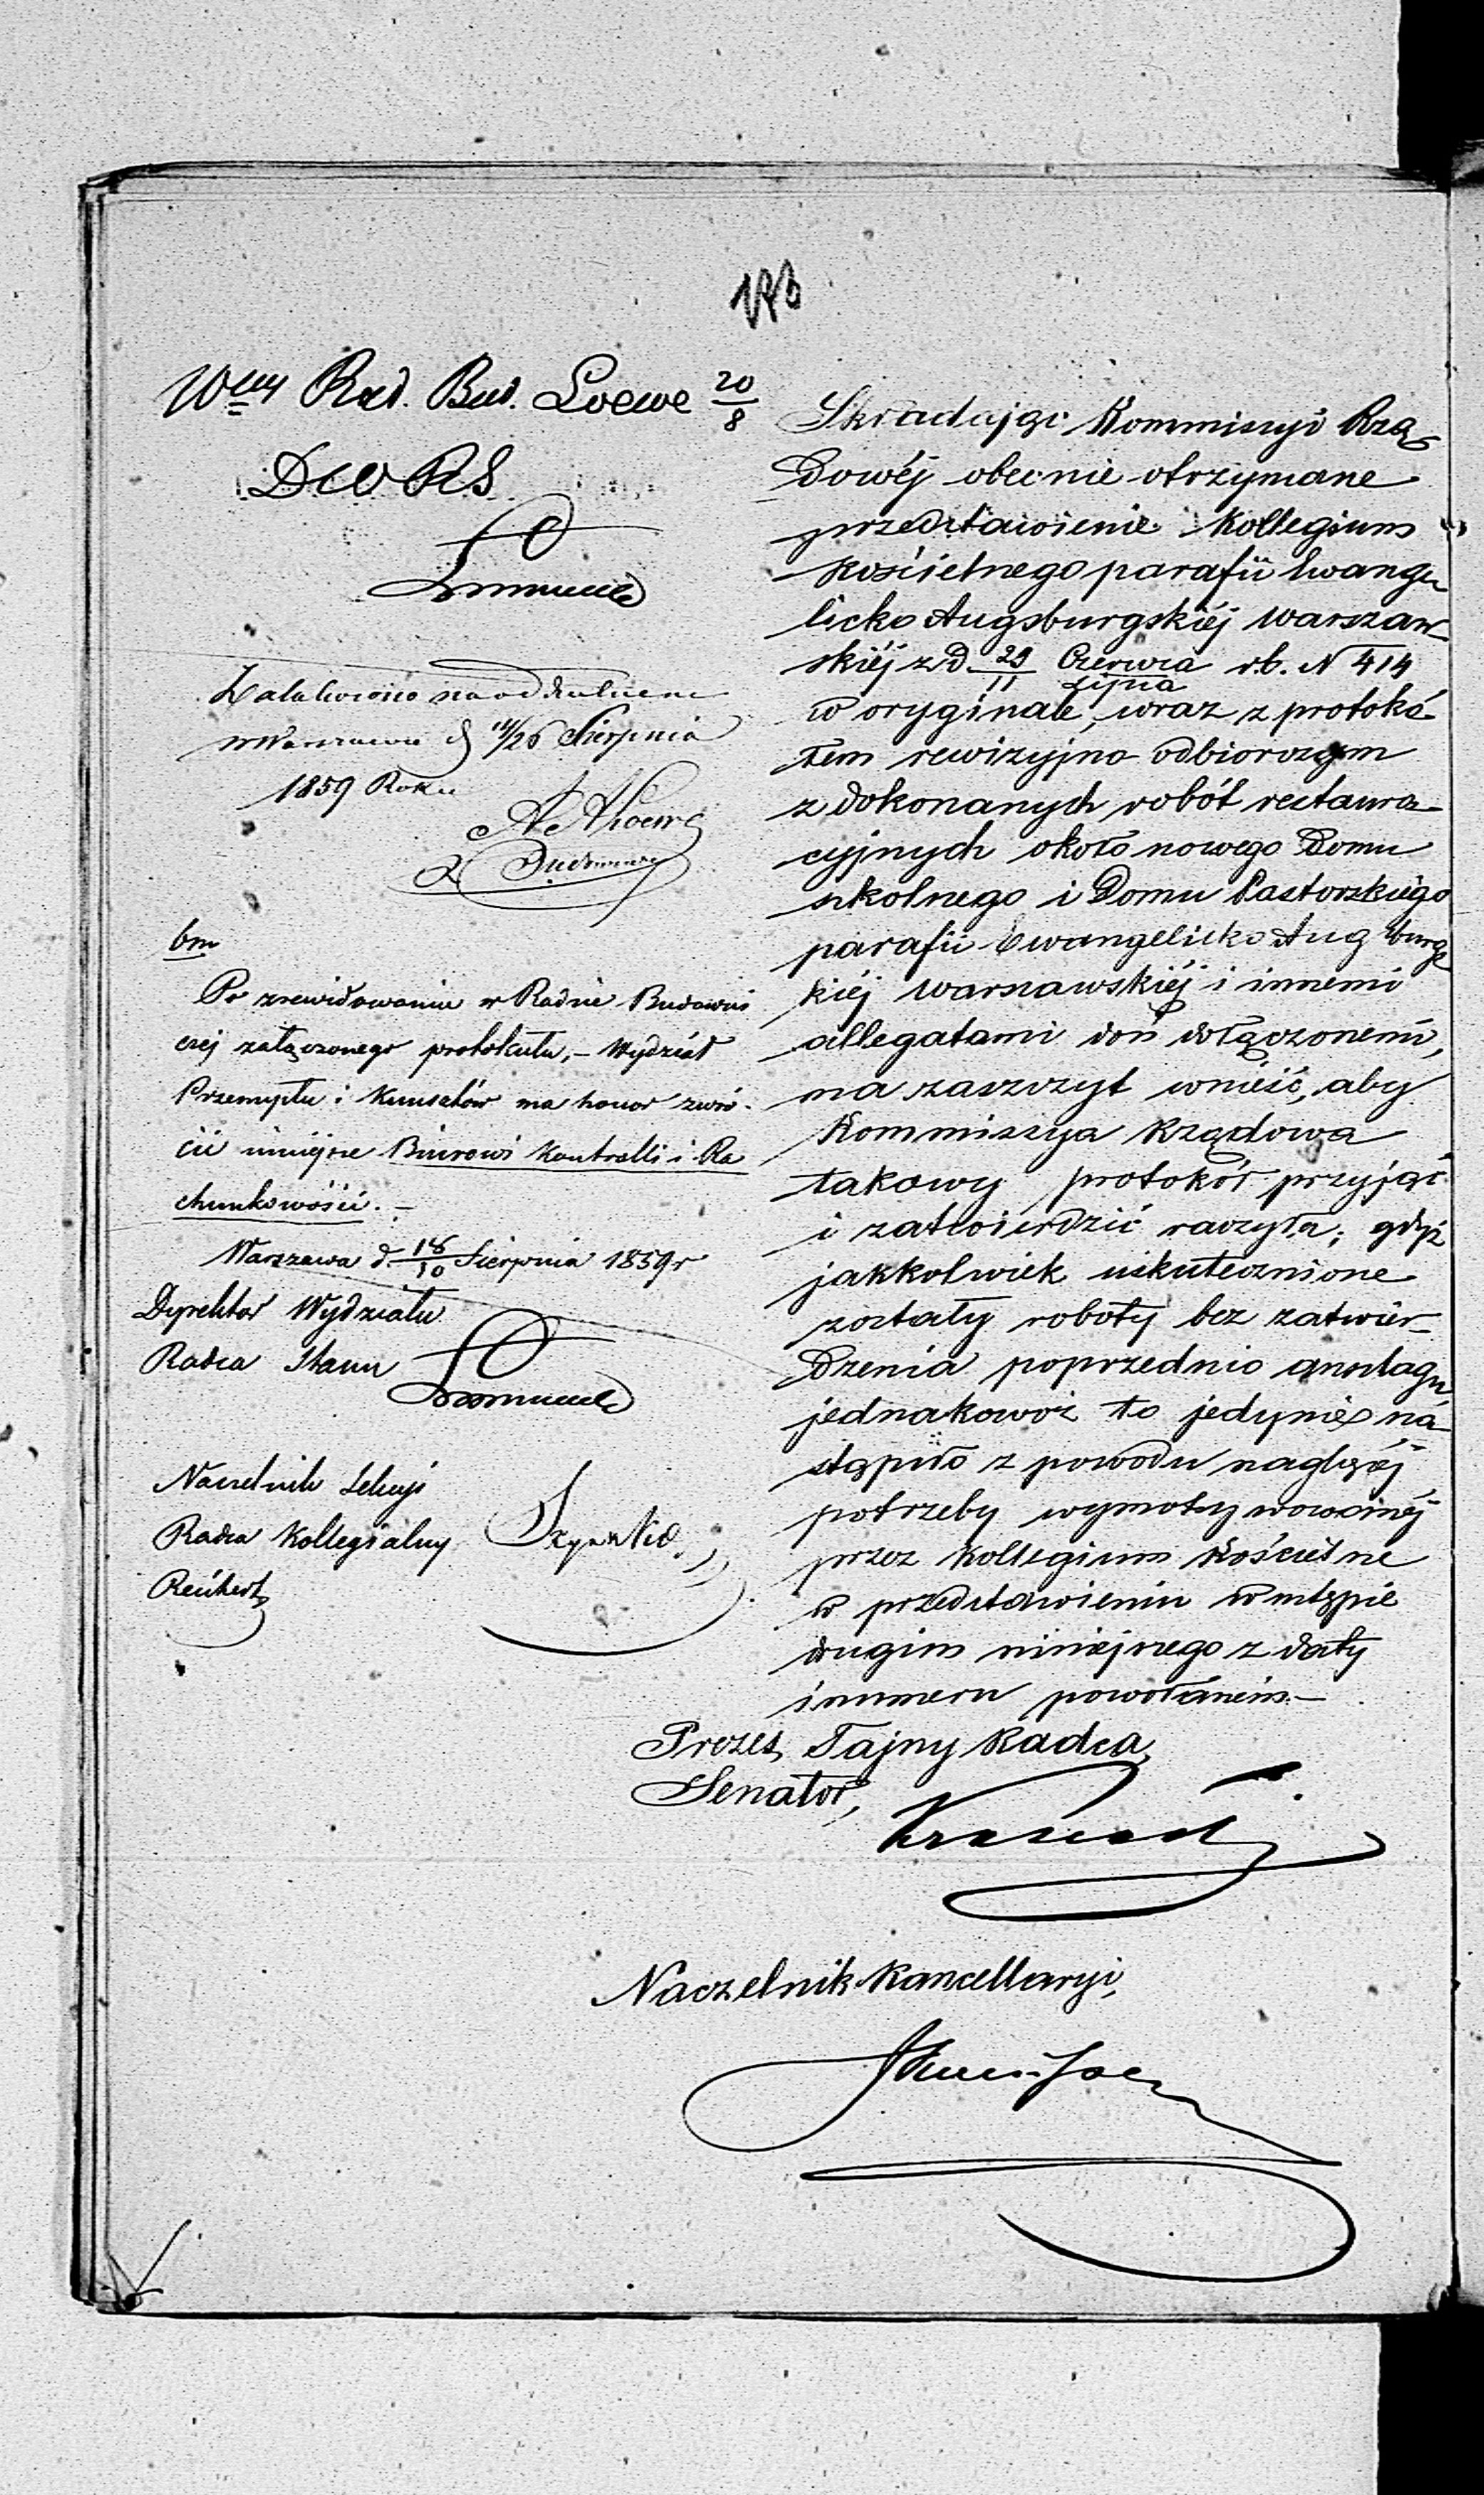 Wny Rad. Bud. Loewe 20/8
DWORS
Załatwiono na oddzielnem
w Warszawie d 14/26 Sierpnia
1859 Roku
A Loewe
bm
Po zrewidowaniu w Radzie Budowni
czej załączonego protokułu, – Wydział
Przemysłu i Kunsztów ma honor zwró-
cić niniejsze Biurowi Kontrolli i Ra
chunkowości. –
Warszawa d. 18/10 Sierpnia 1859 r
Dyrektor Wydziału
Radca Stanu
Naczelnik Sekcyi
Radca Kollegialny
Reichert
Składając Kommissyi Rzą-
dowéj obecnie otrzymane
przedstawienie Kollegium
Kościelnego parafii Ewange
licko Augsburgskiéj Warszaw-
skiéj z D. 29/11 Czerwca/Lipca r.b. N 414
w oryginale, wraz z protokó-
łem rewizyjno odbiorczym
z dokonanych robót restaura-
cyjnych około nowego Domu
szkolnego i Domu Pastorskiego
parafii Ewangelicko Augsburgs
kiéj Warszawskiéj i innemi
allegatami doń dołączonemi,
ma zaszczyt wnieść, aby
Kommissya Rządowa
takowy protokół przyjąć
i zatwierdzić raczyła; gdyż
jakkolwiek uskutecznione
zostały roboty bez zatwier-
dzenia poprzednio anszlagu
jednakowoż to jedynie na-
stąpiło z powodu nagłéj
potrzeby wymotywowanéj
przez Kollegium Kościelne
w przedstawieniu w wstępie
drugim niniejszego z daty
i numeru powołanem. –
Prezes, Tajny Radca,
Senator,
Naczelnik Kancellaryi,